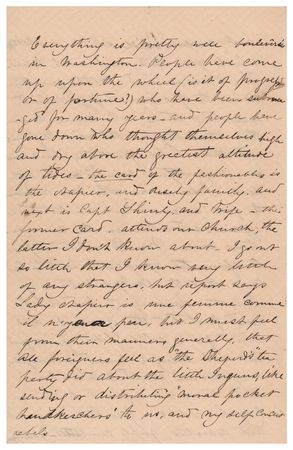 Everything is pretty well
in Washington. People have come
up upon the wheel (is it of progress
or of fortune?) who have been subme
ged for many years - and people have
gone down who thought themselves high
and dry above the greatest altitude
of tides - the card of the fashionables is
the Napier, and Ousely family. and
next is Capt Shirly, and wife - the
former card. attends our church, the
latter I don't know about. I go out
so little that I know very little
of any strangers, but report says
Lady Napier is une femme comme
il n'y a pas, but I must feel
from their manners generally, that
all foreigners feel as "the Shepherds" tea
party did about the little Inguns, like
sending or distributing "moral pocket
handkerchers" to us, and my self
rebels.